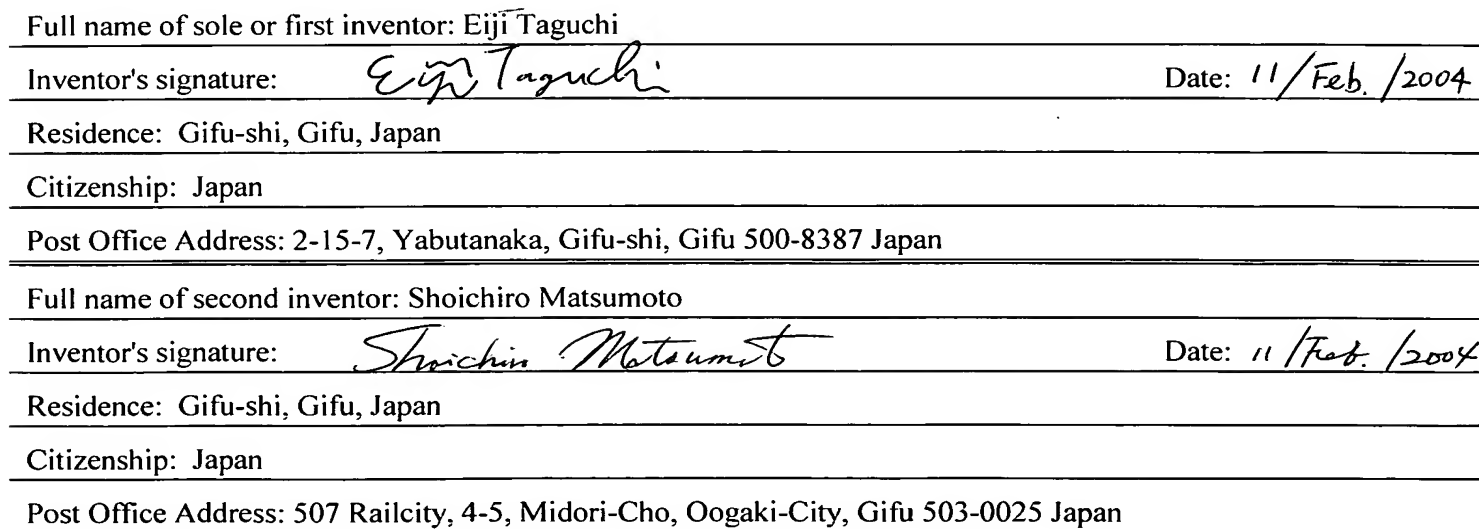 Full name of sole or first inventor: Eiji Taguchi
Inventor's signature: Eiji Taguchi Date: 11/Feb./2004
Residence: Gifu-shi, Gifu, Japan
Citizenship: Japan
Post Office Address: 2-15-7, Yabutanaka, Gifu-shi, Gifu 500-8387 Japan
Full name of second inventor: Shoichiro Matsumoto
Inventor's signature: Shoichiro Matsumoto Date: 11/Feb./2004
Residence: Gifu-shi, Gifu, Japan
Citizenship: Japan
Post Office Address: 507 Railcity, 4-5, Midori-Cho, Oogaki-City, Gifu 503-0025 Japan